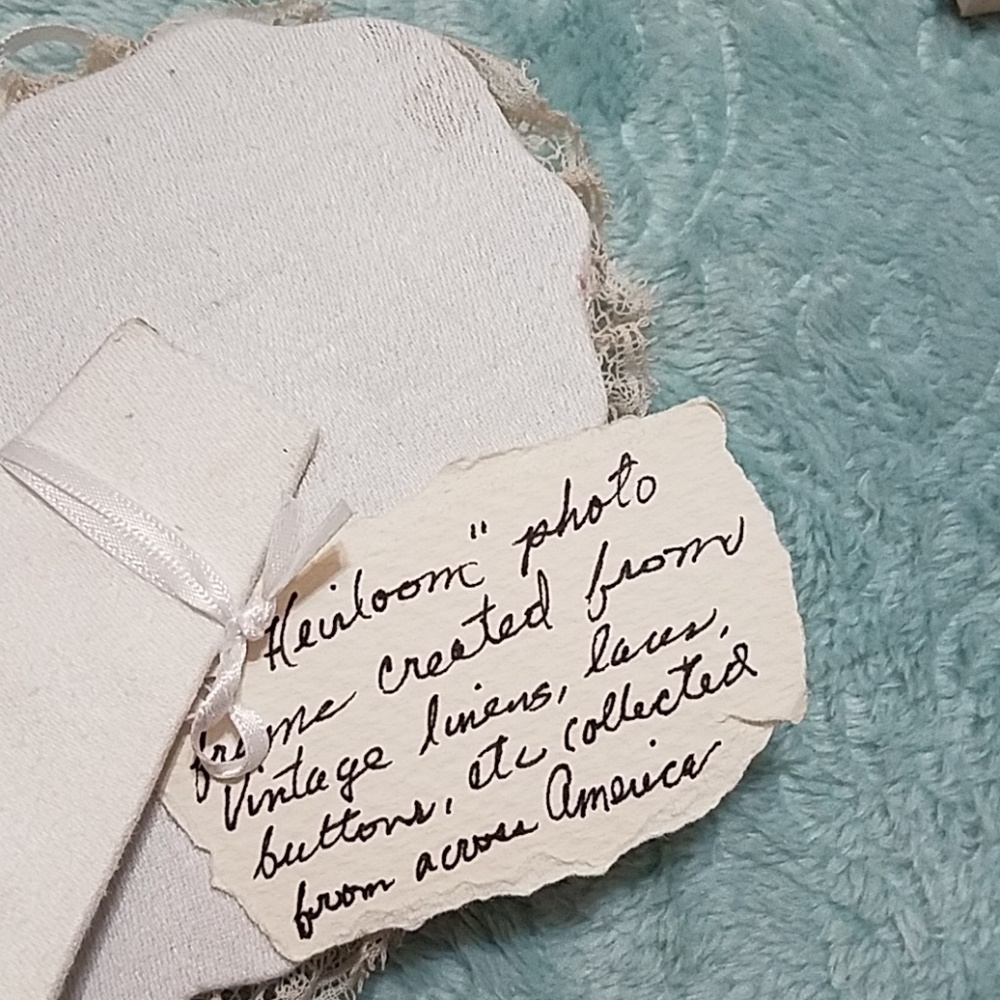 Heirloom" photo
frame created from
Vintage linens, laces,
buttons, etc collected
from across America